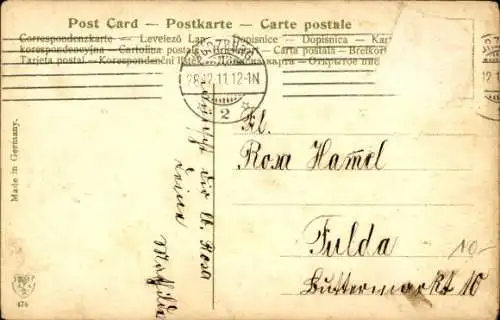 Post Card – Postkarte – Carte postale
Correspondenzkarte – Levelező Lap – Dopisnice – Dopisnica –
korespondencyjna – Cartolina postale – Brefkort – Carta postala – Brefkort
Tarjeta postal – Korespondenční lístek – – Открытое
28.12.11.12-1N
2
Made in Germany.
wünscht Dir lb. Rosa
Deine
Mathilde
Frl.
Rosa Hamel
Fulda
Buttermarkt 10
10-
476